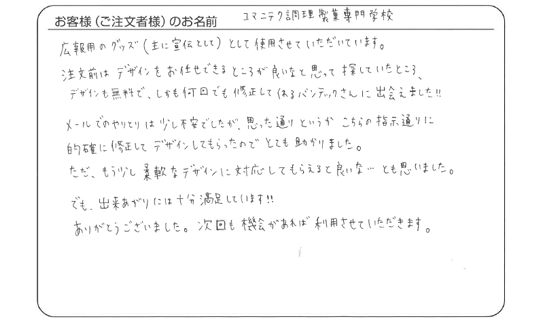 お客様(ご注文者様)のお名前 コマニテク調理製菓専門学校
広報用のグッズ(主に宣伝として)として使用させていただいています。
注文前はデザインをお任せできるところが良いなと思って探していたところ、
デザインも無料で、しかも何回でも修正してくれるバンテックさんに出会えました!!
メールでのやりとりは少し不安でしたが、思った通りというか こちらの指示通りに
的確に修正してデザインしてもらったので とても助かりました。
ただ、もう少し柔軟なデザインに対応してもらえると良いな…とも思いました。
でも、出来あがりには十分満足しています!!
ありがとうございました。次回も機会があれば利用させていただきます。